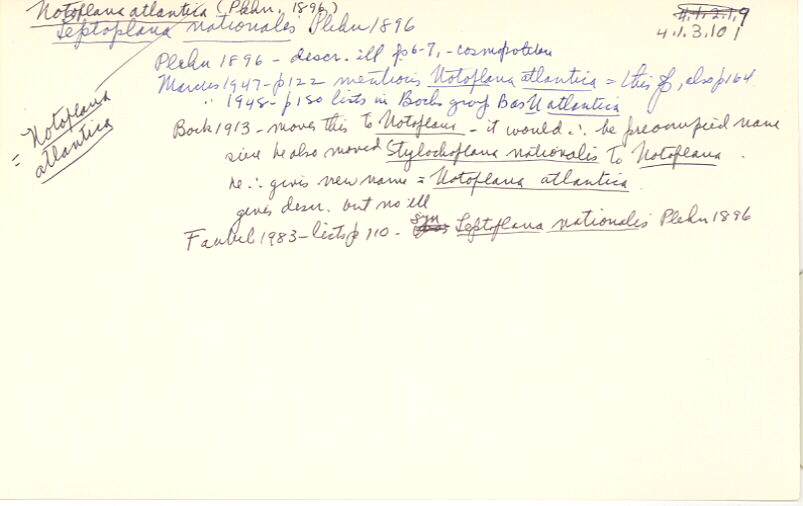 Notoplana atlantica (Plehn, 1896)
4.1.2.19
Leptoplana nationalis Plehn 1896
4.1.3.101
Plehn 1896 - descr. ill p6-7, - cosmopolitan
Marcus 1947 - p122 mentions Notoplana atlantica = this sp, also p164
" 1948 - p180 lists in Bocks group B as N atlantica
= Notoplana atlantica
Bock 1913 - moves this to Notoplana - it would ∴ be preoccupied name
since he also moved Stylochoplana nationalis to Notoplana.
he ∴ gives new name = Notoplana atlantica.
gives descr. but no ill
Faubel 1983 - lists p 110 - syn Leptoplana nationalis Plehn 1896